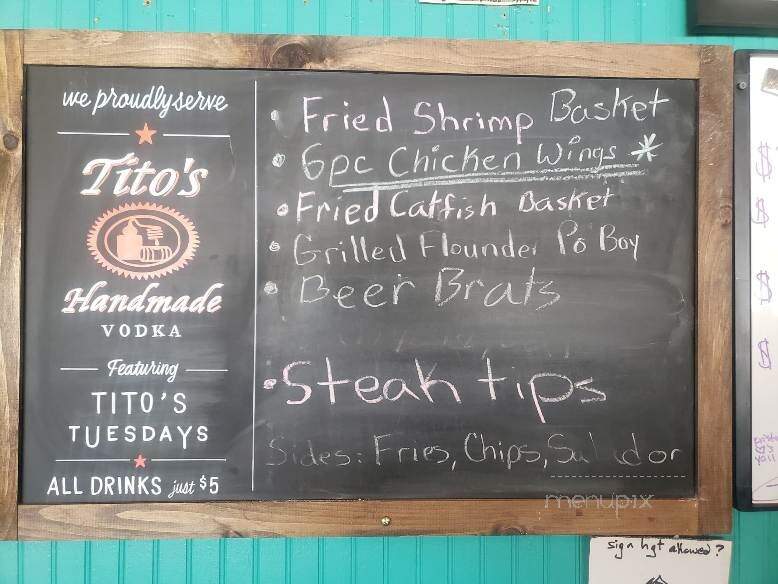 we proudly serve
Tito's
Handmade
VODKA
Featuring
TITO'S
TUESDAYS
ALL DRINKS just $5
• Fried Shrimp Basket
• 6pc Chicken Wings *
• Fried Catfish Basket
• Grilled Flounder Po Boy
• Beer Brats
• Steak tips
Sides: Fries, Chips, Salad or
menupix
$
$
$
$
sign hgt allowed?